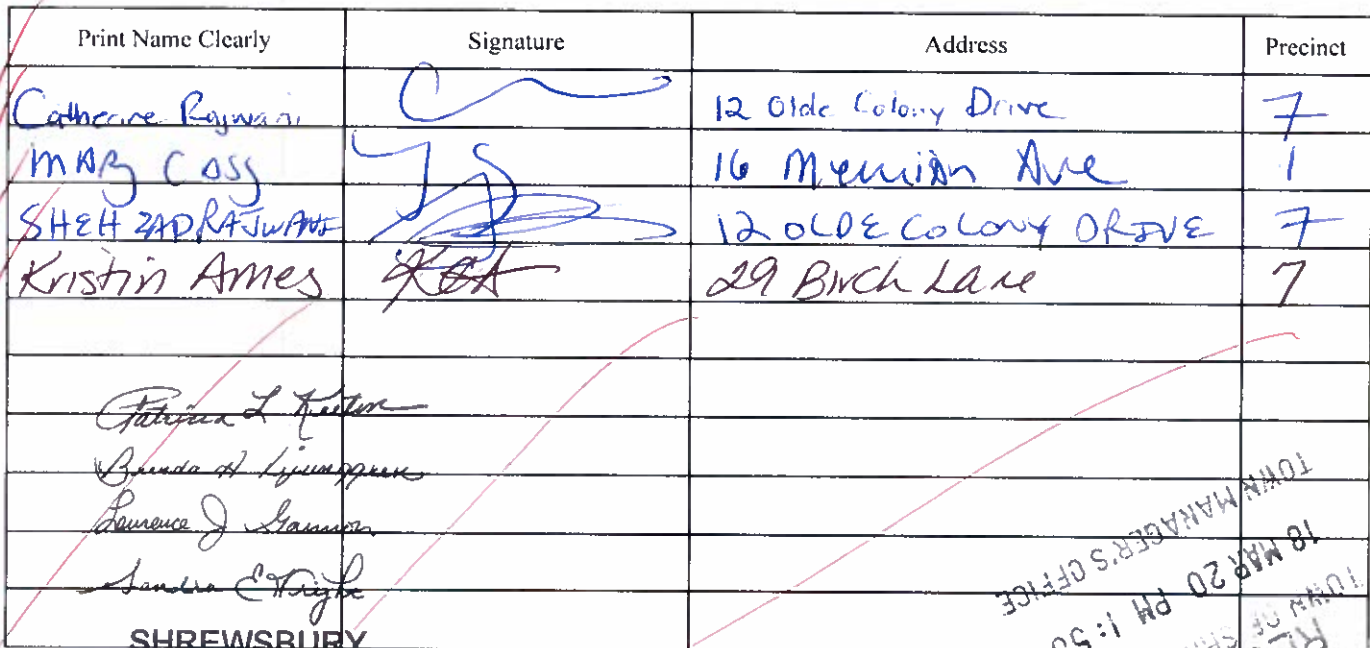 Print Name Clearly Signature Address Precinct
Catherine Rajwani 12 Olde Colony Drive 7
MARy CASS 16 Ave 1
SHEHZAD RAJWANI 12 OLDE COLONY DRIVE 7
Kristin Ames KSA 29 Birch Lane 7
Patricia L
Brenda H
Laurence J Gannon
Sandra E Wright
SHREWSBURY
TOWN MANAGER'S OFFICE
18 MAR 20 PM 1:50
TOWN OF